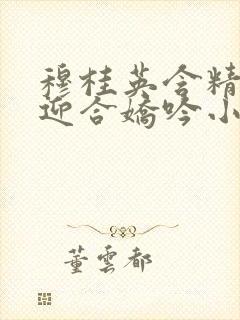 穆桂英含精
迎合嬌吟小
董雲都